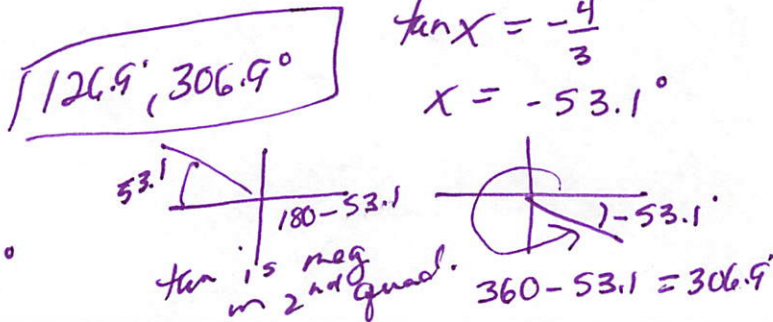 tan x = -4/3
126.9°, 306.9°
x = -53.1°
53.1
180-53.1
-53.1°
tan is neg
in 2nd quad.
360-53.1 = 306.9°